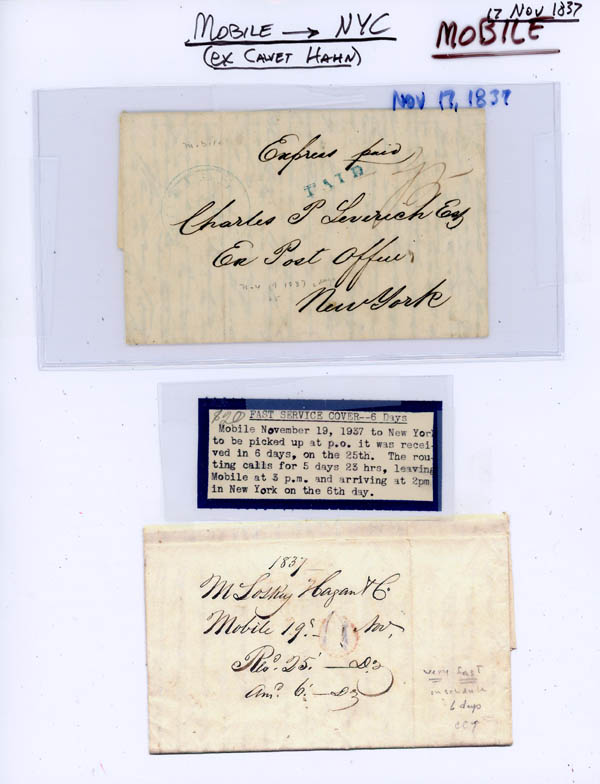 MOBILE → NYC
(ex CALVET HAHN)
17 NOV 1837
MOBILE
NOV 17, 1837
Express paid
PAID
Charles P Leverich Esq
Ex Post Office
New York
Nov 19 1837
$20 FAST SERVICE COVER--6 Days
Mobile November 19, 1937 to New York
to be picked up at p.o. it was recei-
ved in 6 days, on the 25th. The rou-
ting calls for 5 days 23 hrs, leaving
Mobile at 3 p.m. and arriving at 2pm
in New York on the 6th day.
1837
McLoskey Hagan & Co.
Mobile 19 Nov,
Recd. 25 — Do
Ansd. 6 — Do
very fast
in schedule
6 days